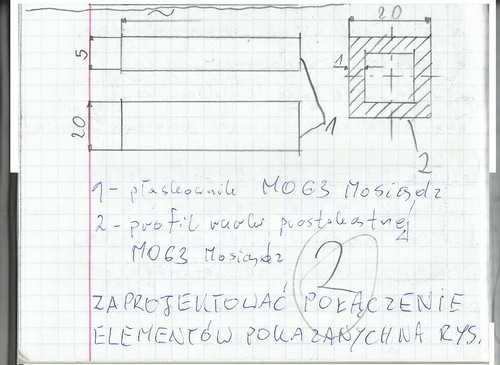 ~
20
5
1
20
1
2
1 - płaskownik MO63 Mosiądz
2 - profil rurki prostokątnej
MO63 Mosiądz
2
ZAPROJEKTOWAĆ POŁĄCZENIE
ELEMENTÓW POKAZANYCH NA RYS.